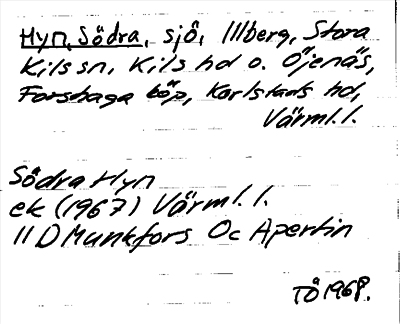 Hyn, Södra, sjö, Illberg, Stora
Kils sn, Kils hd o. Öjenäs,
Forshaga köp, Karlstads hd,
Värml.l.
Södra Hyn
ek (1967) Värml.l.
11 D Munkfors Oc Apertin
TÅ 1968.